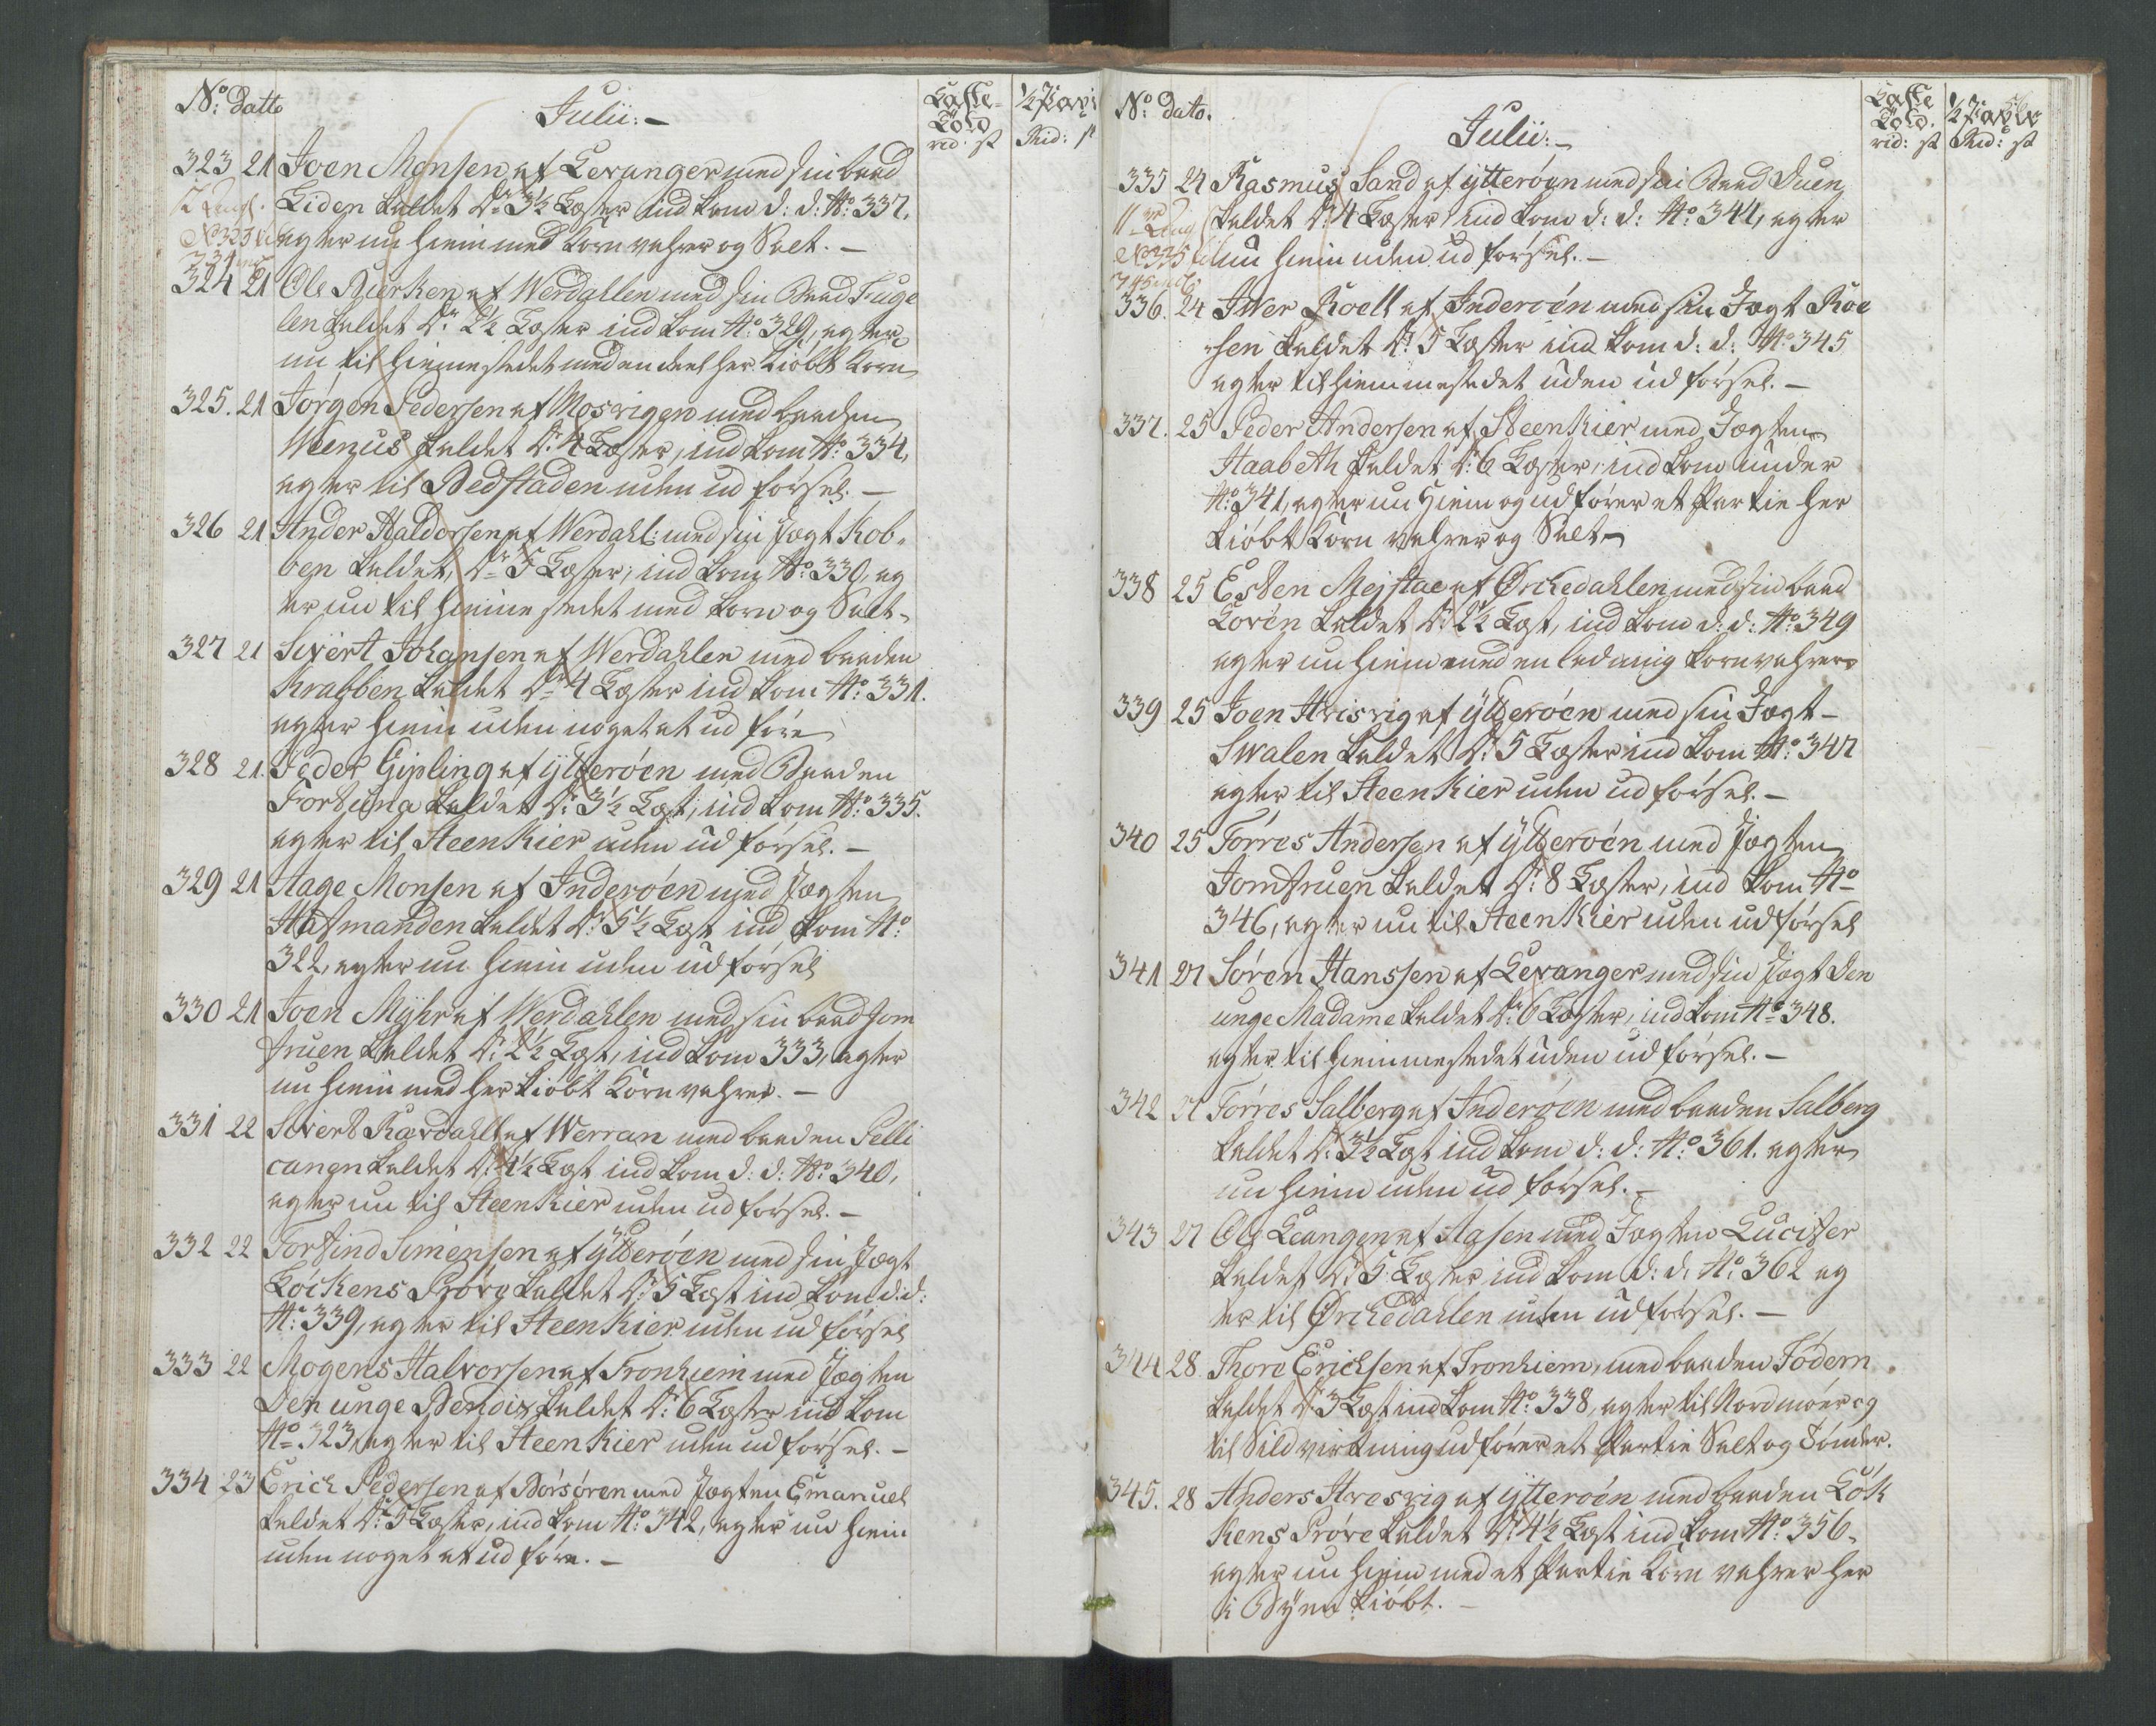 No: datto
Julii: -
Laste-
Told
rid: st
½ Pavi
Rid: st
323 21 Joen Monsen af Levanger med sin baad
Liden kaldet Dr: 3½ Læster ind kom d: d: No: 337.
agter nu hiem med Korn vahrer og Salt. -
324 21 Ole Bierken af Werdahlen med sin Baad Fuge
len kaldet Dr: 2½ Læster ind kom No: 329, agter
nu til hiemmestedet med en deel her kiöbt Korn
325. 21 Jörgen Pedersen af Mosvigen med baaden
Wenus kaldet Dr: 4 Læster, ind kom No: 334,
agter til Bedstaden uden ud försel. -
326 21 Ander Haldorsen af Werdahl: med sin Jagt Kob-
ben kaldet, Dr: 5 Læster, ind kom No: 330, ag
ter nu til hiemme stedet med korn og Salt-
327 21 Sivert Johansen af Werdahlen med baaden
Krabben kaldet Dr: 4 Læster ind kom No: 331.
agter hiem uden noget at ud före
328 21. Peder Gipling af ytteröen med Baaden
Fortuna kaldet Dr: 3½ Læst, ind kom No: 335.
agter til Steenkier uden ud försel. -
329 21 Aage Monsen af Inderöen med Jagten
Hafmanden kaldet Dr: 5½ Læst ind kom No:
322, agter nu hiem uden ud försel
330 21 Joen Myhr af Werdahlen med sin baad Jom
fruen kaldet Dr: 2½ Læst, ind kom 333, agter
nu hiem med her kiöbt Korn vahrer. -
331 22 Sivert Kardahl af Werran med baaden Pelli
canen kaldet Dr: 4½ Læst ind kom d: d: No: 340,
agter nu til Steenkier uden ud försel. -
332 22 Torfind Simensen af ytteröen med sin Jagt
Löckens Pröve kaldet Dr: 5 Læst ind kom d: d:
No: 339, agter til Steenkier uden ud försel
333 22 Mogens Halvorsen af Tronhiem med Jagten
Den unge Bendix kaldet Dr: 6 Læster ind kom
No: 323, agter til Steenkier uden ud försel. -
334 23 Erich Pedersen af Börsören med Jagten Emanuel
kaldet Dr: 5 Læster, ind kom No: 342, agter nu hiem
uden noget at ud före. -
No: dato.
Julii: -
Laste
Told.
rid: st
½
Rid: st
335 24 Rasmus Sand af ytteröen med sin Baad Duen
11 Aug kaldet Dr: 4 Læster ind kom d: d: No: 344, agter
nu hiem uden ud försel. -
336. 24 Iver Roell af Inderöen med sin Jagt Roe
sen kaldet Dr: 5 Læster ind kom d: d: No: 345
agter til hiemmestedet uden ud försel. -
337. 25 Peder Andersen af Steenkier med Jagten
Haabeth kaldet Dr: 6 Læster, ind kom under
No: 341, agter nu hiem og ud förer et Partie her
kiöbt Korn vahrer og Salt -
338 25 Esten Mejstae af Ørchedahlen med sin baad
Loven kaldet Dr: 2½ Læst, ind kom d: d: No: 349
agter nu hiem med en ladning korn vahrer
339 25 Joen Hrisvig af ytteröen med sin Jagt -
Swalen kaldet Dr: 5 Læster ind kom No: 347
agter til Steenkier uden ud försel. -
340 25 Törres Andersen af ytteröen med Jagten
Jomfruen kaldet Dr: 8 Læster, ind kom No
346, agter nu til Steenkier uden ud försel
341 27 Sören Hanssen af Levanger med sin Jagt Den
unge Madame kaldet Dr: 6 Læster, ind kom No: 348.
agter til hiemmestedet uden ud försel. -
342 27 Törres Salberg af Inderöen med baaden Salberg
kaldet Dr: 3½ Læst ind kom d: d: No: 361. agter
nu hiem uden ud försel. -
343 27 Ole Leangen af Aasen med Jagten Lucifer
kaldet Dr: 5 Læster ind kom d: d: No: 362 ag
ter til Ørchedahlen uden ud försel. -
344 28 Thore Erichsen af Tronhiem, med baaden Födern
kaldet Dr: 3 Læst ind kom No: 338, agter til Nordmöer og
til Sild virkning ud förer et Partie Salt og Tönder.
345. 28 Anders Hresvig af ytteröen med baaden Lök
kens Pröve kaldet Dr: 4½ Læst ind kom No: 356-
agter nu hiem med et Partie Korn vahrer her
i Byen kiöbt. -